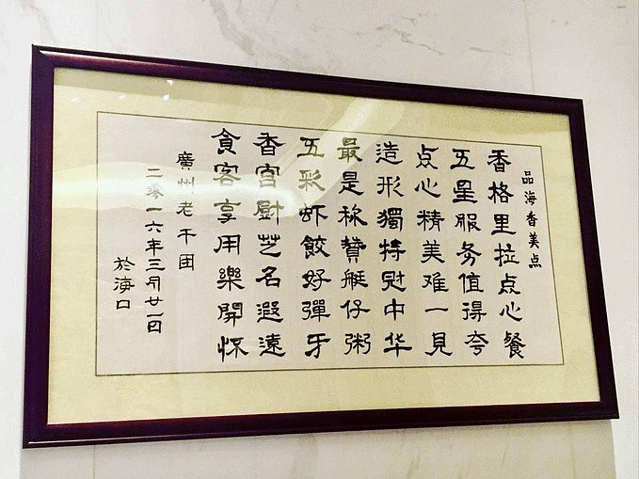 品海香美点
香格里拉点心餐
五星服务值得夸
点心精美难一見
造形獨特冠中华
最是称贊艇仔粥
五彩虾餃好彈牙
香宫厨艺名遐遠
食客享用樂開怀
廣州老干团
二零一六年三月廿一日
於海口